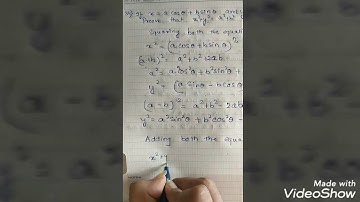 If x = a cosθ + b sinθ, and
Prove that x²+y² = a²+b²
Squaring both the equa
x² = (a cosθ + b sinθ)²
(a+b)² = a²+b²+2ab
x² = a²cos²θ + b²sin²θ
y² = (a sinθ -
(a - b)² = a²+b²-2ab
y² = a²sin²θ + b²cos²θ -
Adding both the equa
x²+
Made with
VideoShow